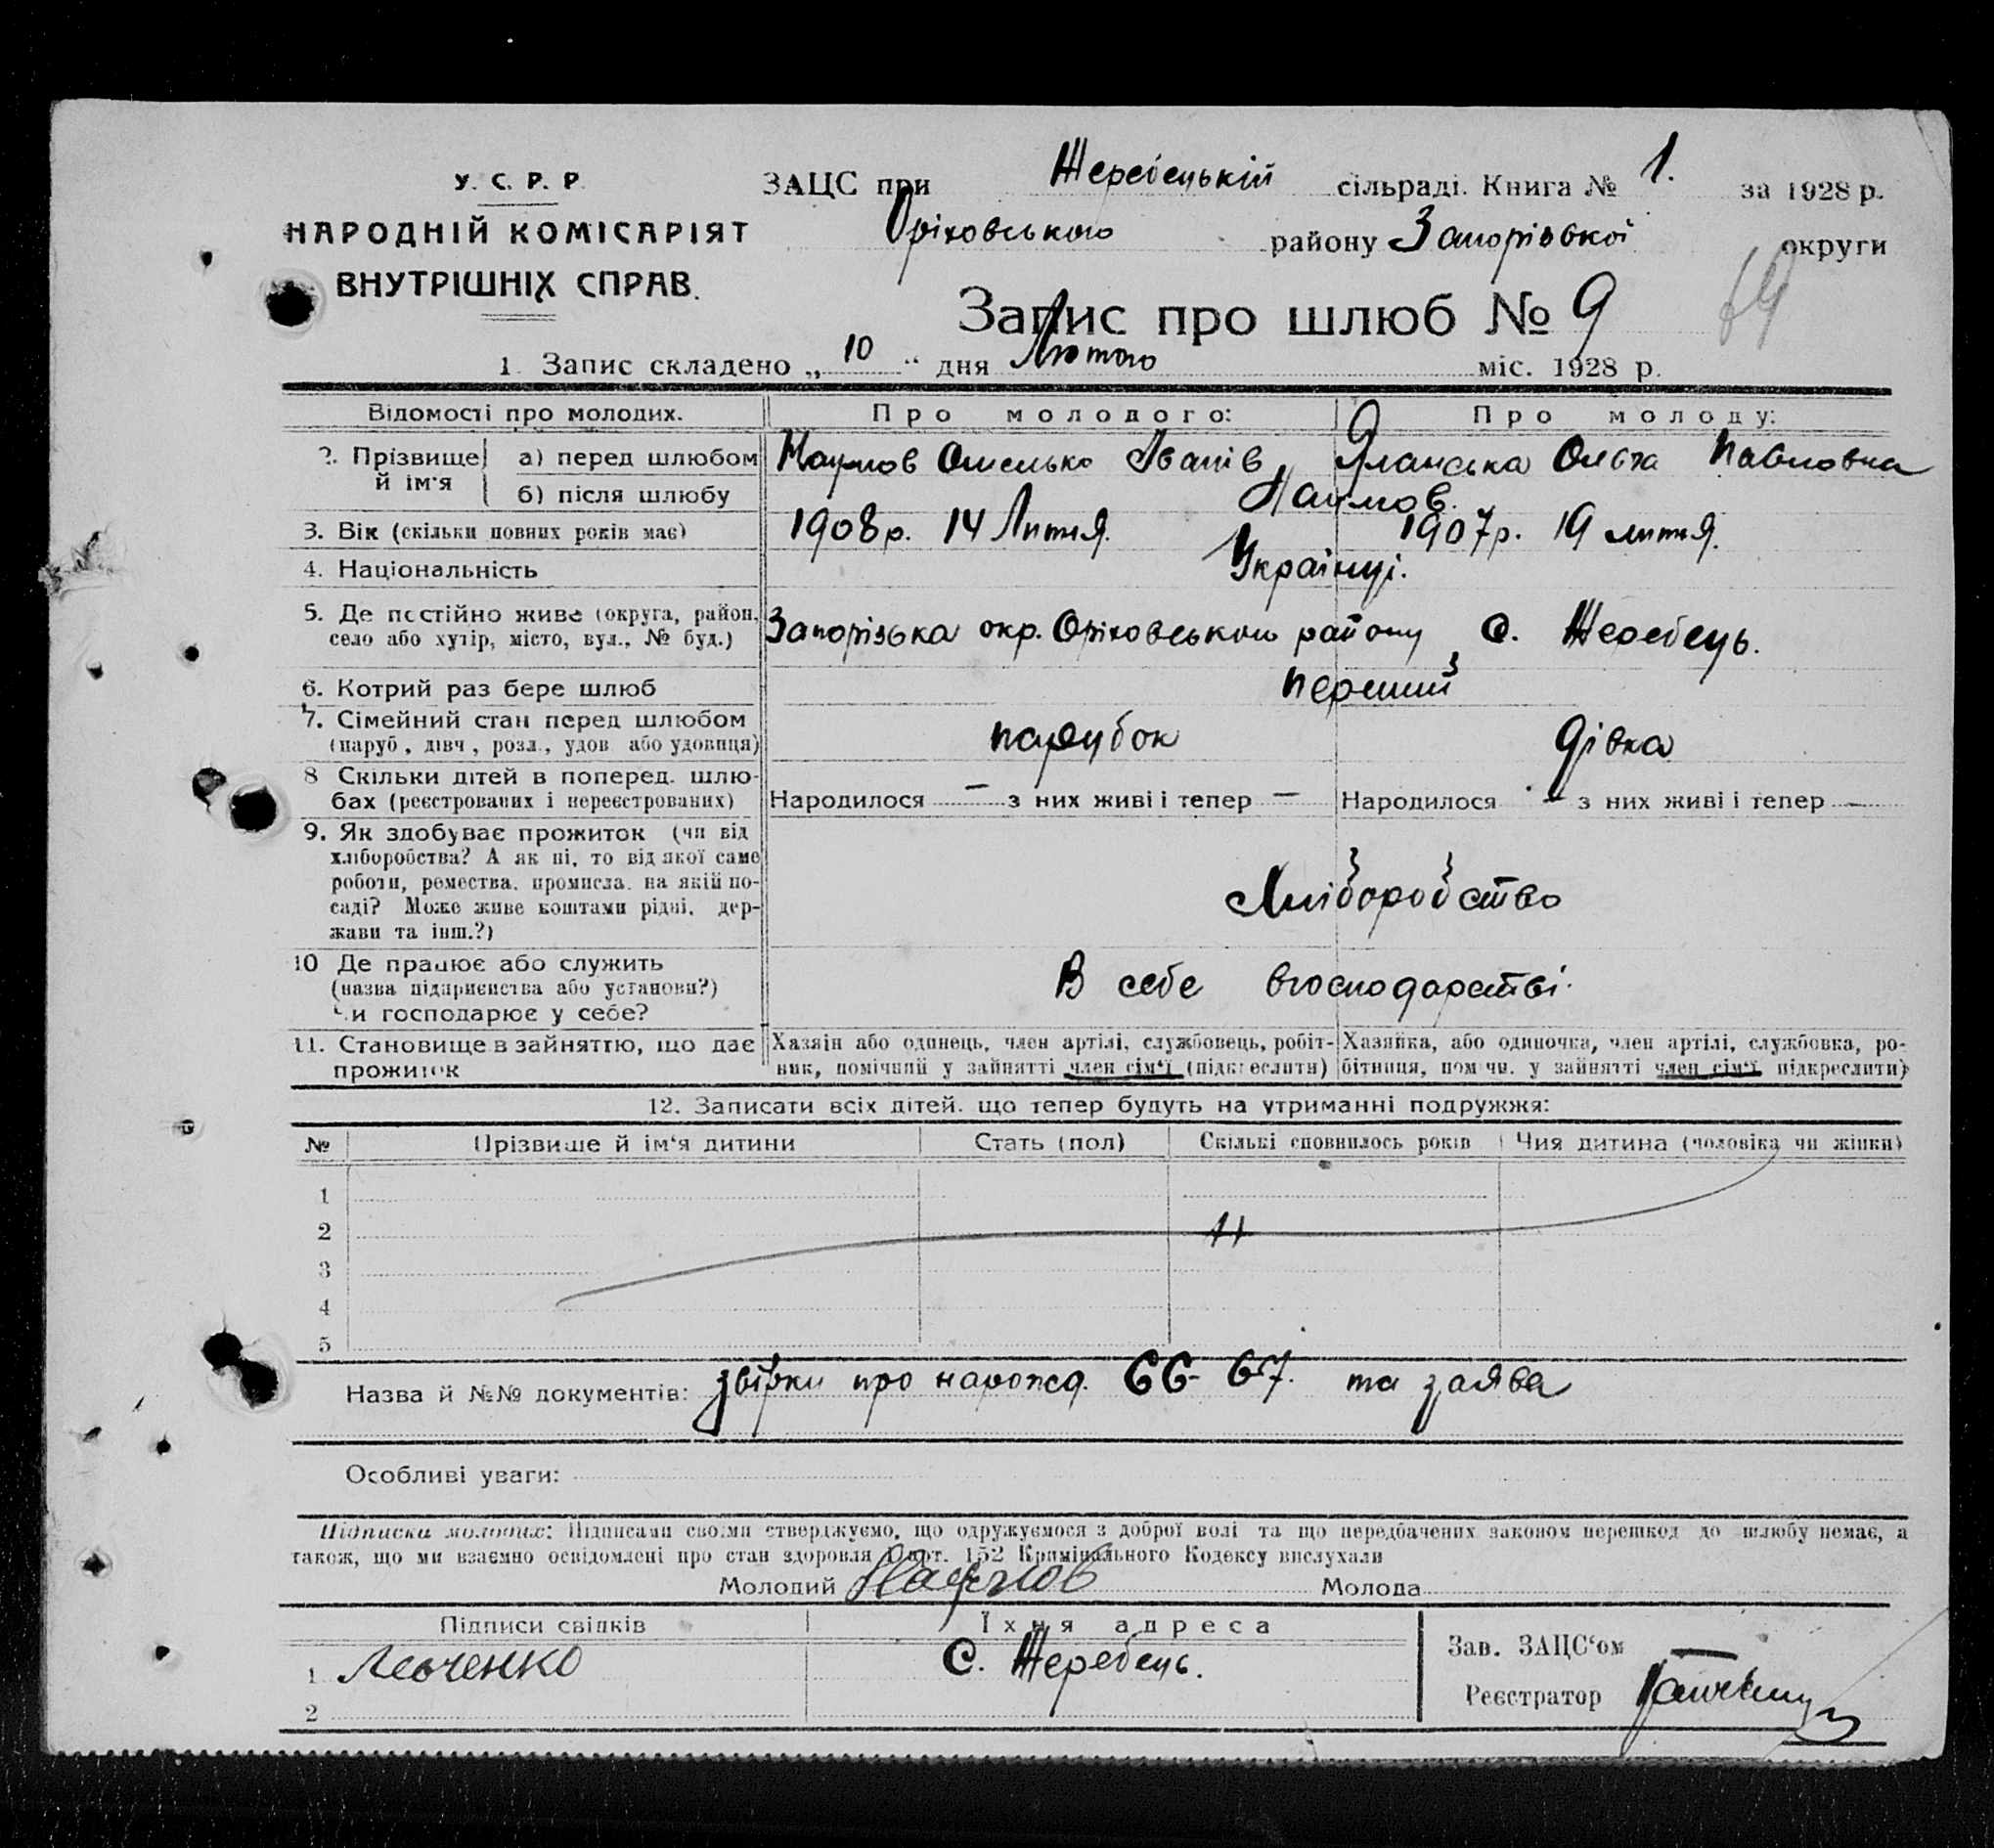 У. С. Р. Р.
НАРОДНІЙ КОМІСАРІЯТ
ВНУТРІШНІХ СПРАВ.
ЗАЦС при Жеребецькій сільраді. Книга № 1. за 1928 р.
Оріховського району Запорізької округи
Запис про шлюб № 9
69
1. Запис складено „ 10 “ дня Лютого міс. 1928 р.
Відомості про молодих. Про молодого: Про молоду:
2. Прізвище й ім'я а) перед шлюбом Наумов Омелько Іванів Яланська Ольга Павловна
б) після шлюбу Наумов.
3. Вік (скільки повних років має) 1908 р. 14 Липня. 1907 р. 19 липня.
4. Національність Українці.
5. Де постійно живе (округа, район, село або хутір, місто, вул., № буд.) Запорізька окр. Оріховського району С. Жеребець.
6. Котрий раз бере шлюб перший
7. Сімейний стан перед шлюбом (паруб., дівч., розл., удов. або удовиця) парубок дівка
8 Скільки дітей в поперед. шлюбах (реєстрованих і нереєстрованих) Народилося — з них живі і тепер — Народилося — з них живі і тепер —
9. Як здобуває прожиток (чи від
хліборобства? А як ні, то від якої саме
роботи, ремества, промисла, на якій по-
саді? Може живе коштами рідні, дер-
жави та інш.?)
Хліборобство
10 Де працює або служить
(назва підприємства або установи?)
Чи господарює у себе?
В себе вгосподарстві.
11. Становище в зайняттю, що дає прожиток
Хазяїн або одинець, член артілі, службовець, робіт-
ник, помічний у зайнятті член сім'ї (підкреслити)
Хазяйка, або одиночка, член артілі, службовка, ро-
бітниця, помічн. у зайнятті член сім'ї підкреслити)
12. Записати всіх дітей, що тепер будуть на утриманні подружжя:
№ Прізвише й ім'я дитини Стать (пол) Скількі сповнилось років Чия дитина (чоловіка чи жінки)
1
2
3
4
5
Назва й №№ документів: звірки про народ. 66-67. та заява
Особливі уваги:
Підписка молодих: Підписами своїми стверджуємо, що одружуємося з доброї волі та що передбачених законом перешкод до шлюбу немає, а
також, що ми взаємно освідомлені про стан здоровля О арт. 152 Кримінального Кодексу вислухали
Молодий Наумов Молода
Підписи свідків Їхня адреса
1 Левченко С. Жеребець.
2
Зав. ЗАЦС'ом —
Реєстратор